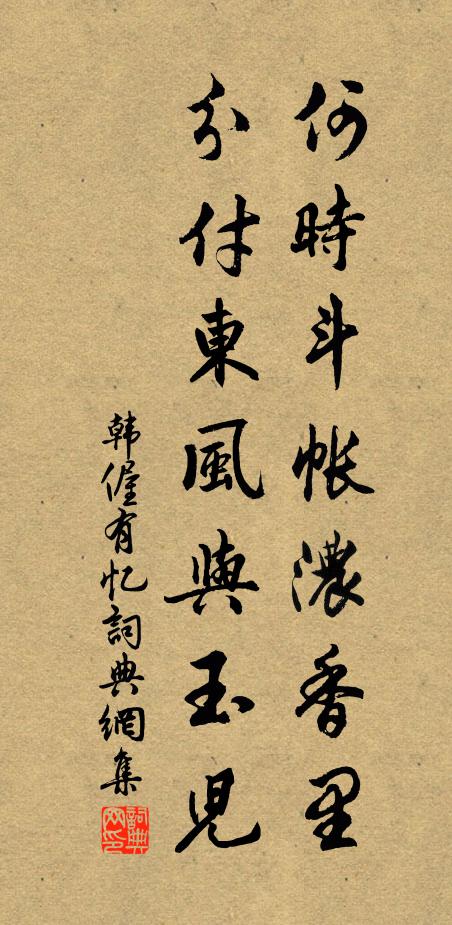 何時斗帳濃香里
分付東風與玉兒
韩偓有忆詞典網集
詞典网印